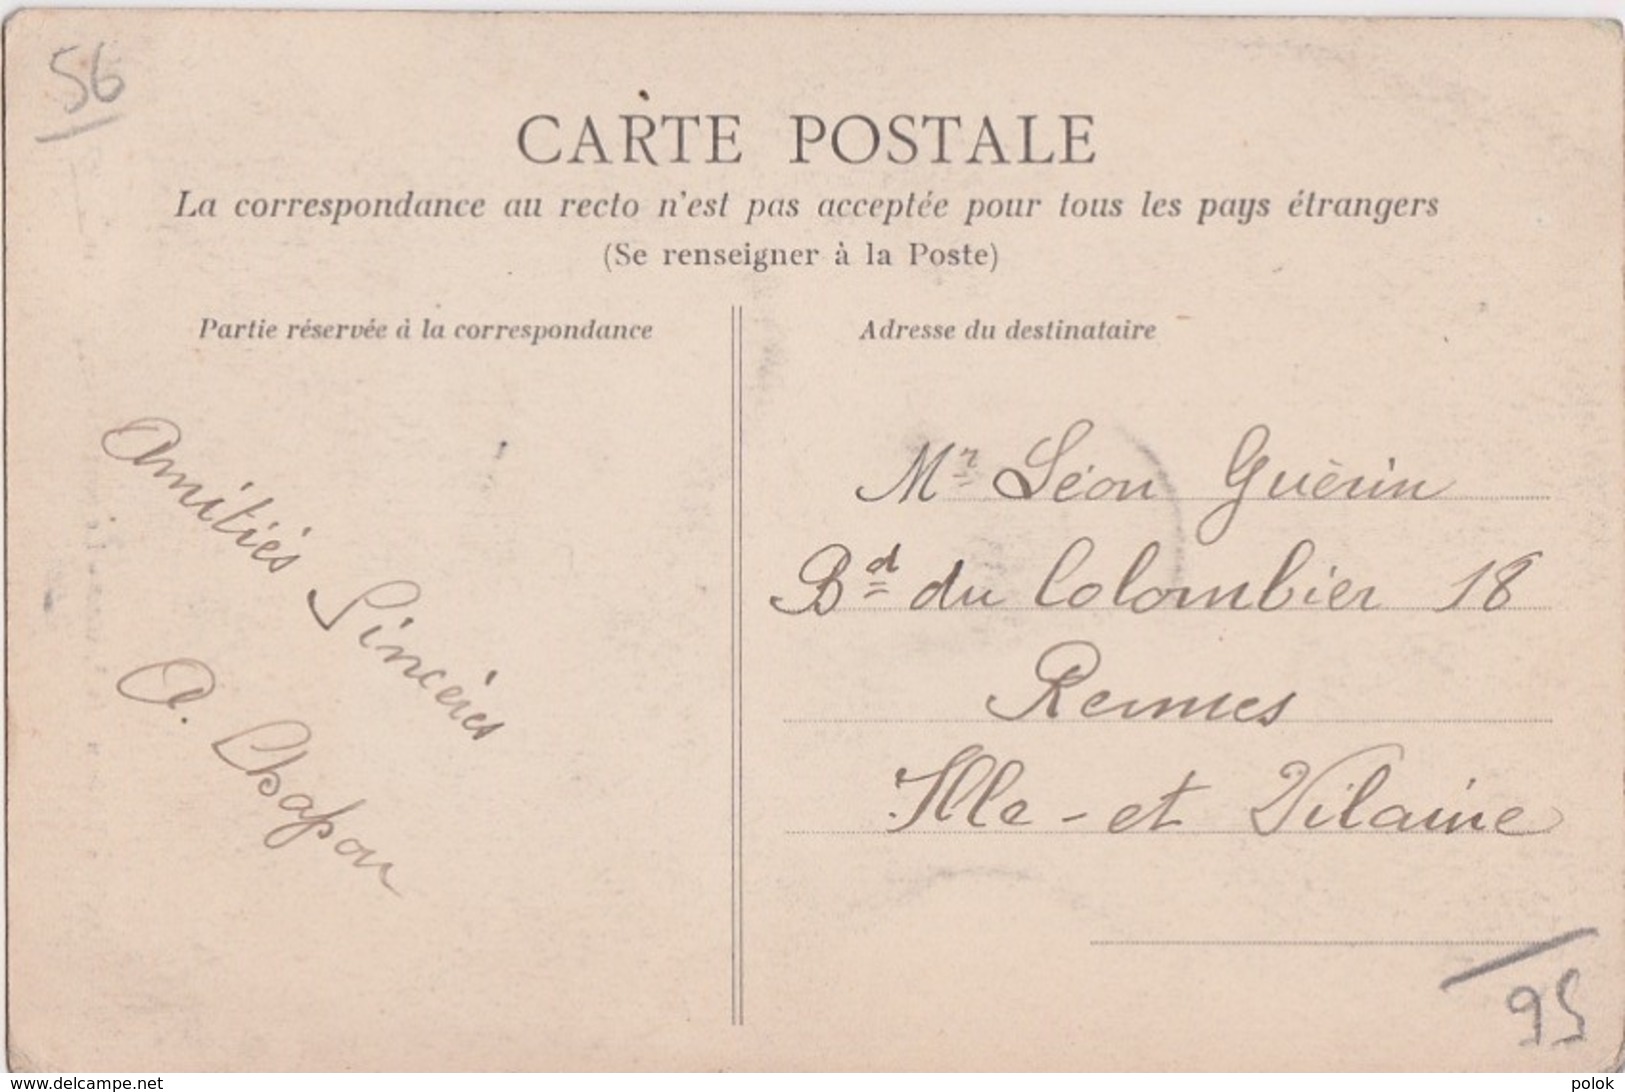 56
CARTE POSTALE
La correspondance au recto n'est pas acceptée pour tous les pays étrangers
(Se renseigner à la Poste)
Partie réservée à la correspondance
Adresse du destinataire
Amitiés Sincères
A. Chapon
Mr Léon Guérin
Bd du Colombier 18
Rennes
Ille-et Vilaine
56
www.delcampe.net
polok